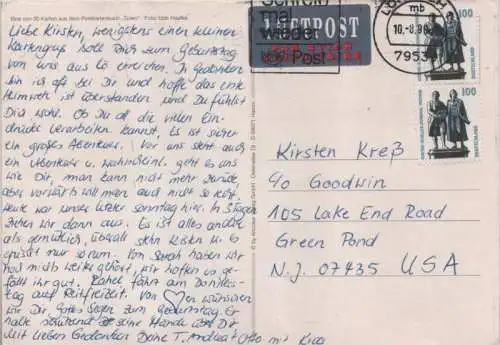 Eine von 30 Karten aus dem Postkartenbuch
Liebe Kirsten, wenigstens einen kleinen
Kartengruß soll Dich zum Geburtstag
von uns aus Lö erreichen. In Gedanken
bin ich oft bei Dir und hoffe das erste
Heimweh ist überstanden und Du fühlst
Dich wohl. Ob Du all die vielen Ein-
drücke verarbeiten kannst, Es ist sicher
ein großes Abenteuer. Vor uns steht auch
ein Abenteuer u. wahrscheinl. geht es uns
wie Dir, man kann nicht mehr zurück
aber vorwärts will man auch nicht so recht.
Heute war unser letzter Sonntag hier. In 5 Tagen
ziehen wir dann aus. Es ist alles andere
als gemütlich, überall stehn Kisten u. es
sieht nur so rum. Von Sarah haben wir
noch nichts weiter gehört, wir hoffen es ge-
fällt ihr gut. Rahel fährt am Diens-
tag auf Reitfreizeit. Von ♡en wünschen
wir Dir Gottes Segen zum Geburtstag. Er
halte schützend seine Hände über Dir
Mit lieben Gedanken Deine T. Andrea Otto mit
Schreib
mal
wieder
Post
LUFTPOST
mb
10.-8.96
7953
100
DEUTSCHLAND
100
DEUTSCHLAND
Kirsten Kreß
c/o Goodwin
105 Lake End Road
Green Pond
N.J. 07435 USA